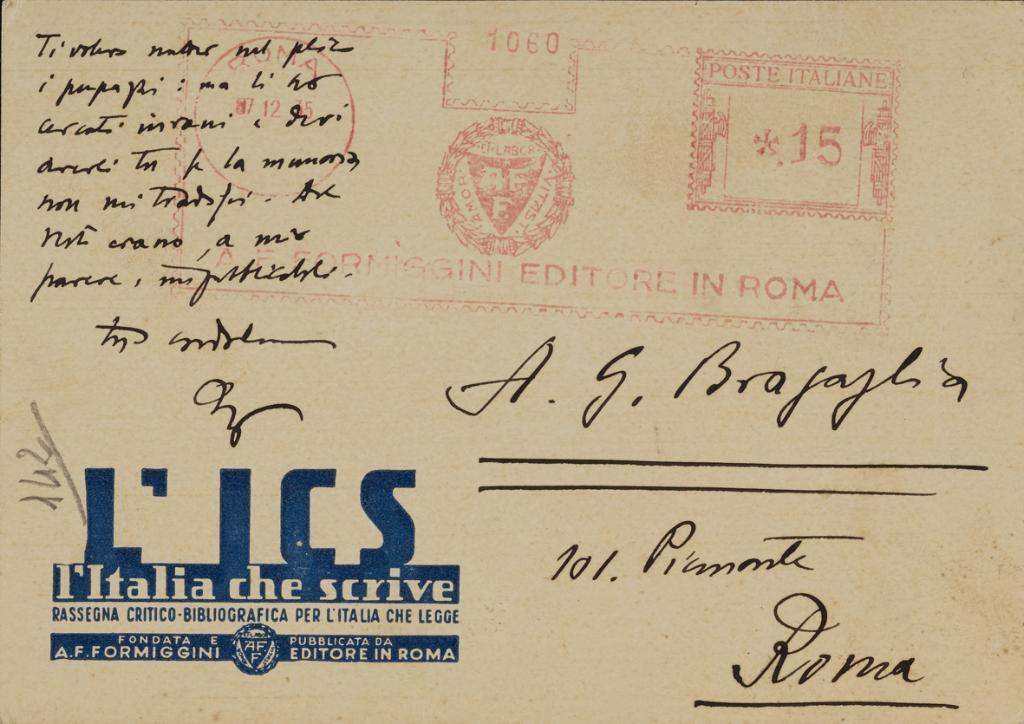 Ti volevo nel plico
i pupazzi : ma li ho
cercati invano e devi
averli tu se la memoria
non mi tradisce.
erano, a mio
parere, impubblicabili.
tuo
ROMA
12
1060
POSTE ITALIANE
*.15
AMOR ET LABOR VITAST
A. F. FORMIGGINI EDITORE IN ROMA
A. G. Bragaglia
101. Piemonte
Roma
142
L'ICS
l'Italia che scrive
RASSEGNA CRITICO-BIBLIOGRAFICA PER L'ITALIA CHE LEGGE
FONDATA E PUBBLICATA DA
A.F. FORMIGGINI EDITORE IN ROMA